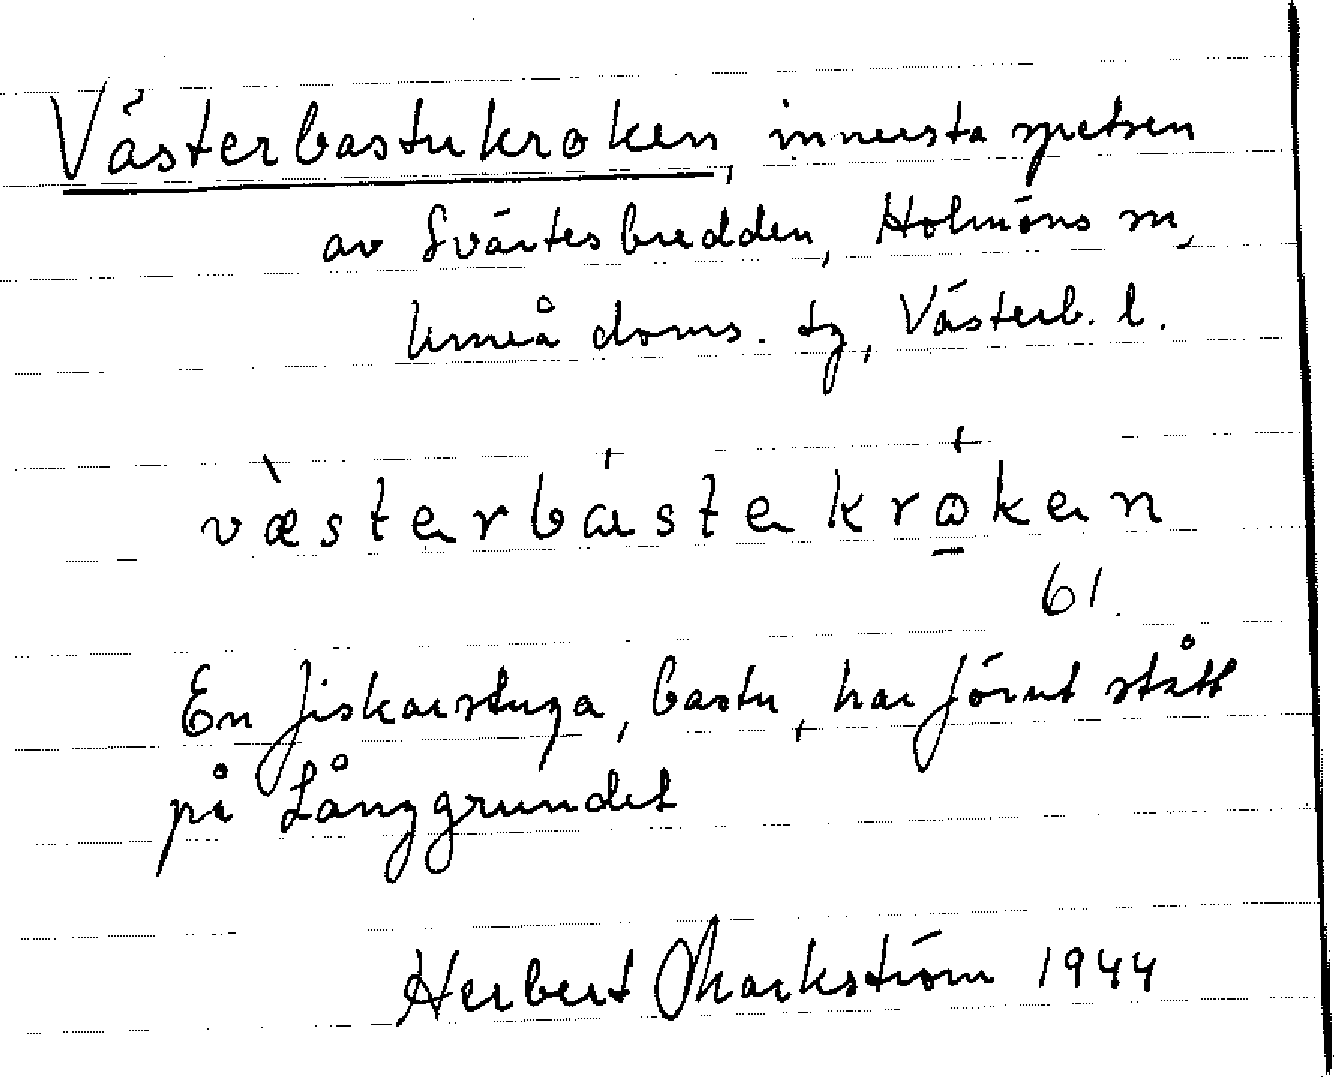 Västerbastukroken, innersta spetsen
av Svärtesbredden, Holmöns sn,
Umeå doms. tg, Västerb. l.
væsterbastekroken
61.
En fiskarstuga, bastu, har förut stått
på Långgrundet
Herbert Markström 1944